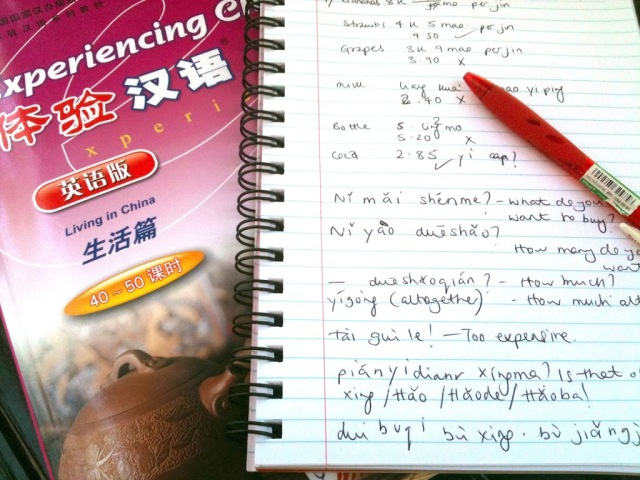 Experiencing
体验汉语
xperi
英语版
Living in China
生活篇
40~50课时
per jin
Strawbs 4 u 5 mao per jin
4 50
Grapes 3 u 9 mao per jin
3.90 x
milk
yi ping
2.40 x
Bottle 5.
5.20 x
Coca 2.85 yi cap?
Nǐ mǎi shénme? - what do you
want to buy?
Nǐ yào duēshǎo?
How many do you
want
— duēshǎoqián? - How much?
yīgòng (altogether) - How much
Tài guì le! — Too expensive.
piányidianr xíngma? Is that
xing / Hǎo / Hǎode / Hǎoba!
dui bu qi bù xíng. bù jiǎngj